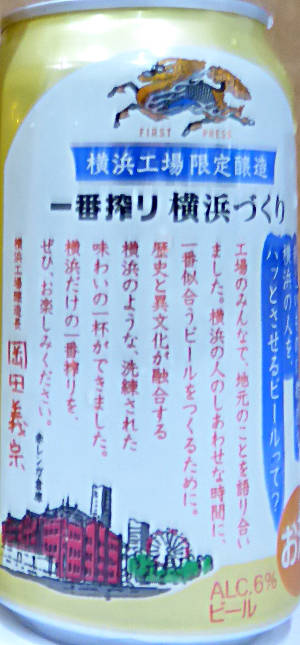 FIRST PRESS
横浜工場限定醸造
一番搾り 横浜づくり
横浜の人を、
ハッとさせるビールって?
工場のみんなで、地元のことを語り合い
ました。横浜の人のしあわせな時間に、
一番似合うビールをつくるために。
歴史と異文化が融合する
横浜のような、洗練された
味わいの一杯ができました。
横浜だけの一番搾りを、
ぜひ、お楽しみください。
横浜工場醸造長
岡田義宗
赤レンガ倉庫
ALC.6%
ビール
お